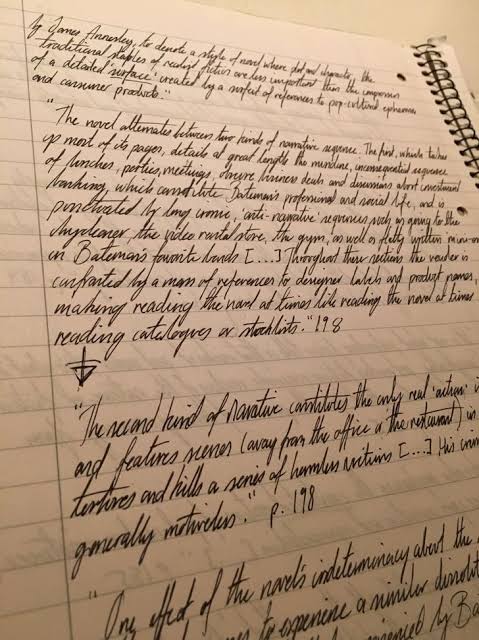 by James Annesley, to denote a style of novel where plot and character, the
traditional staples of realist fiction are less important than the impression
of a detailed 'surface' created by a surfeit of references to pop-cultural ephemera
and consumer products."
"The novel alternates between two kinds of narrative sequence. The first, which takes
up most of its pages, details at great length the mundane, inconsequential sequence
of lunches, parties, meetings, obscure business deals and discussions about investment
banking, which constitute Bateman's professional and social life, and is
punctuated by long comic, 'anti-narrative' sequences such as going to the
drycleaner, the video rental store, the gym, as well as flatly written mini-
on Bateman's favorite bands [...] Throughout these sections the reader is
confronted by a mass of references to designer labels and product names,
making reading the novel at times like reading the novel at times
reading catalogues or stocklists." 198
"The second kind of narrative constitutes the only real 'action' i
and features scenes (away from the office or the restaurant) in
tortures and kills a series of harmless victims [...] His
generally motiveless." p. 198
"One effect of the novel's indeterminacy about the
to experience a similar
by